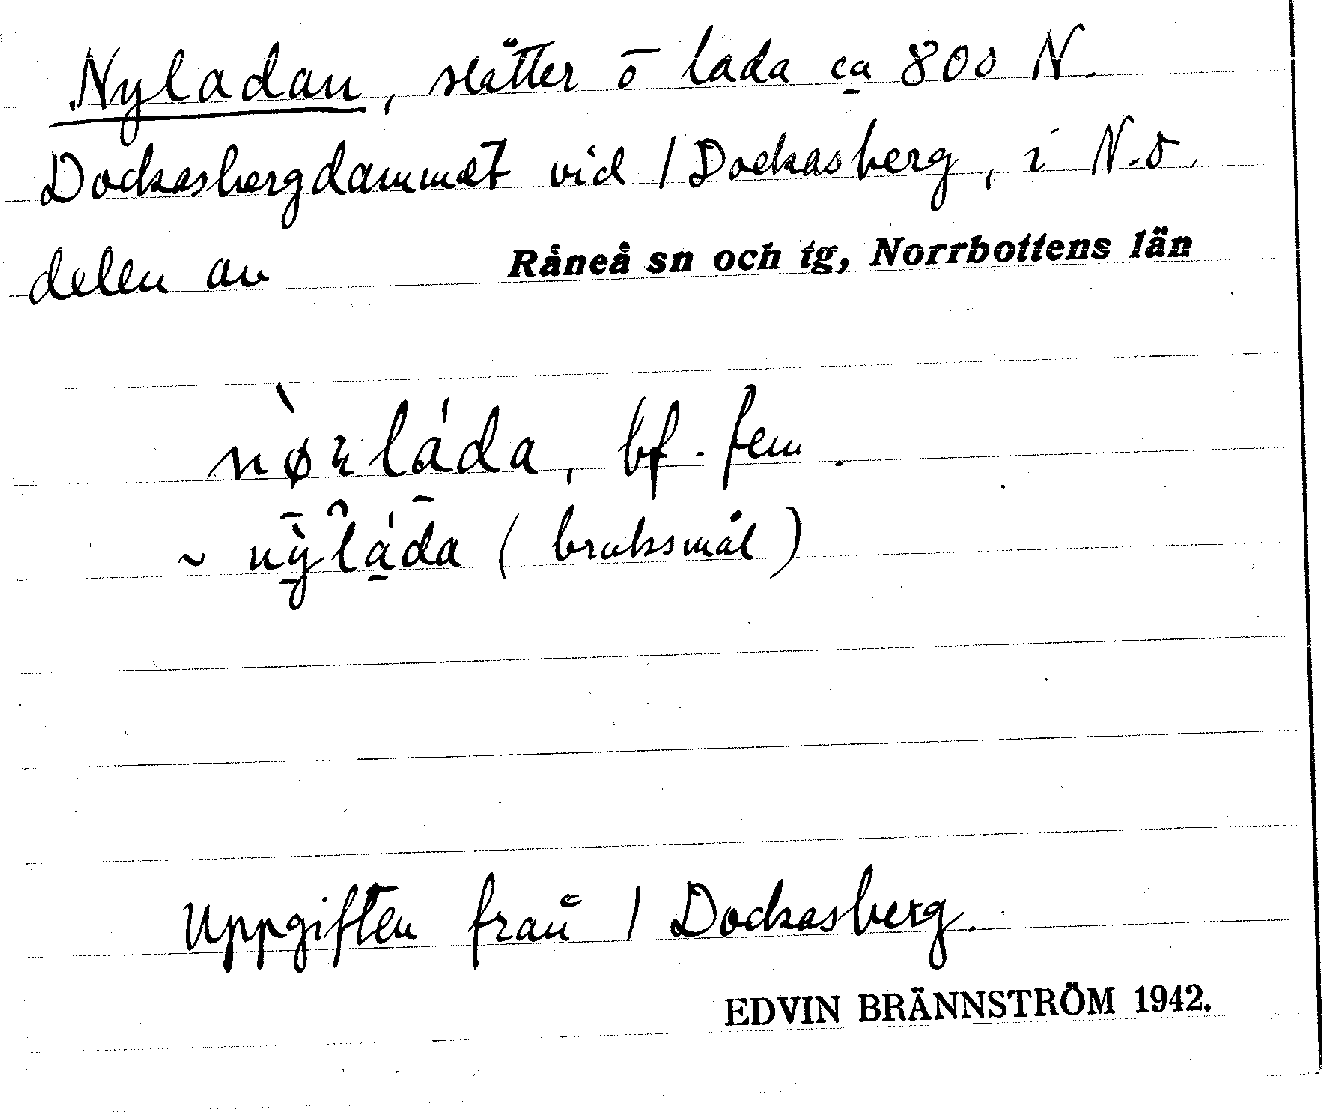 Nyladan, slåtter o lada ca 800 N.
Dockasbergdammet vid 1 Dockasberg, i N.O.
delen av Råneå sn och tg, Norrbottens län
nø̀ʀláda, bf. fem.
~ nȳ̀láda (bruksmål)
Uppgiften från 1 Dockasberg.
EDVIN BRÄNNSTRÖM 1942.